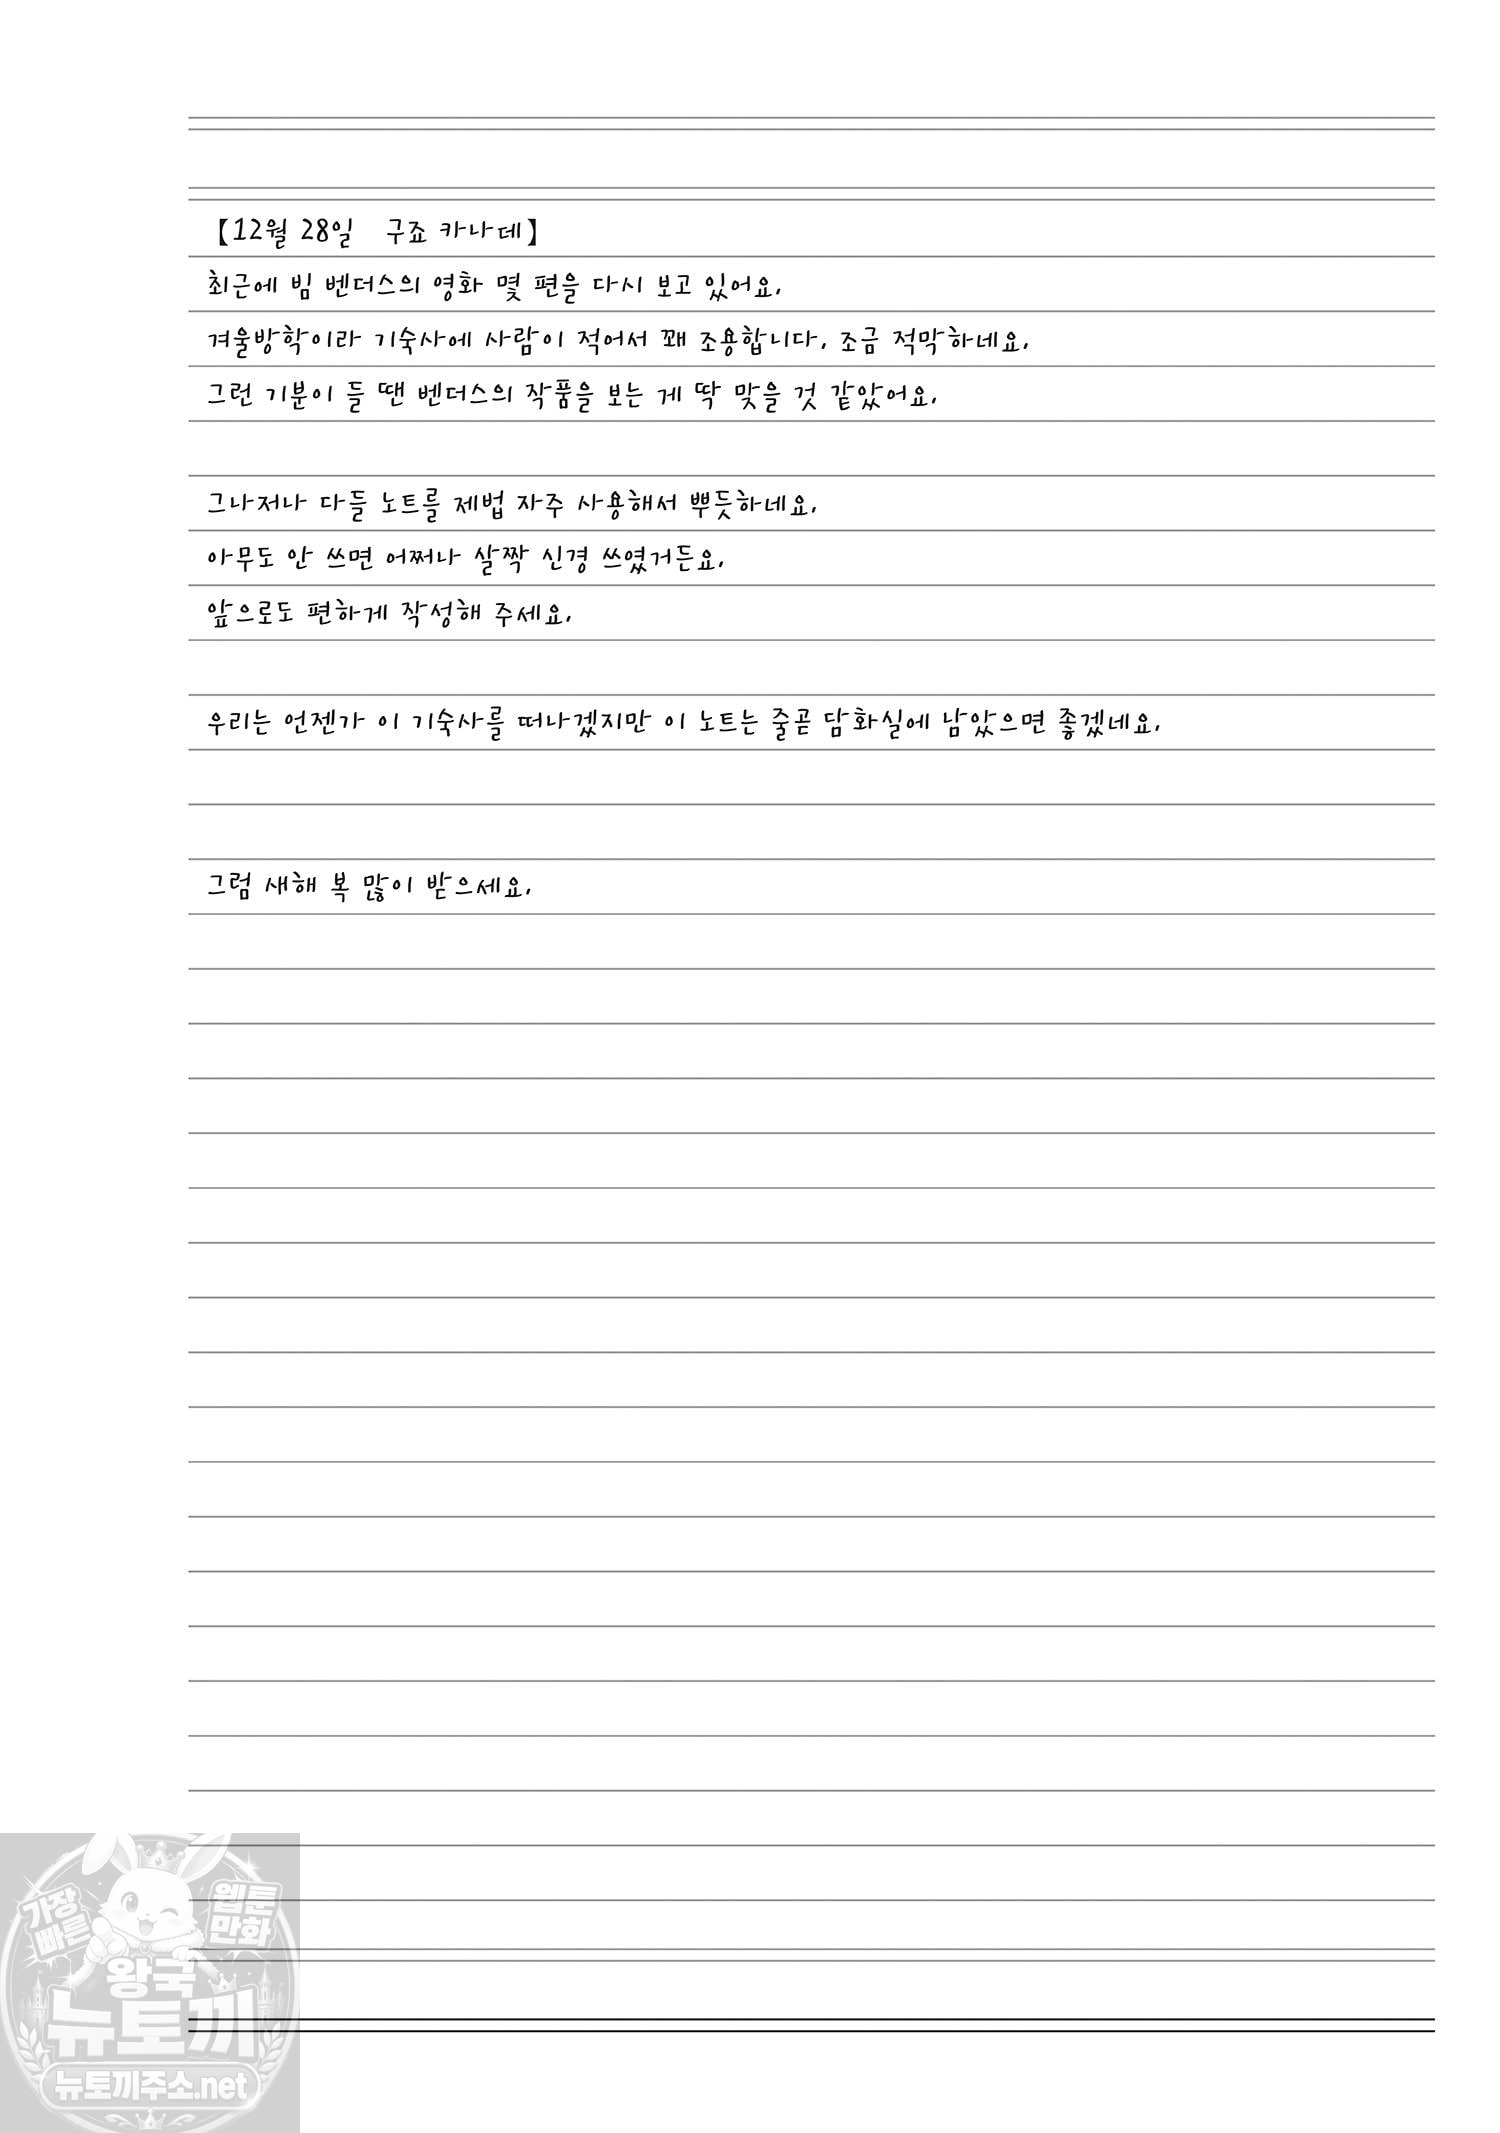 【12월 28일 구죠 카나데】
최근에 빔 벤더스의 영화 몇 편을 다시 보고 있어요.
겨울방학이라 기숙사에 사람이 적어서 꽤 조용합니다. 조금 적막하네요.
그런 기분이 들 땐 벤더스의 작품을 보는 게 딱 맞을 것 같았어요.
그나저나 다들 노트를 제법 자주 사용해서 뿌듯하네요.
아무도 안 쓰면 어쩌나 살짝 신경 쓰였거든요.
앞으로도 편하게 작성해 주세요.
우리는 언젠가 이 기숙사를 떠나겠지만 이 노트는 줄곧 담화실에 남았으면 좋겠네요.
그럼 새해 복 많이 받으세요.
가장
빠른
웹툰
만화
왕국
뉴토끼
뉴토끼주소.net